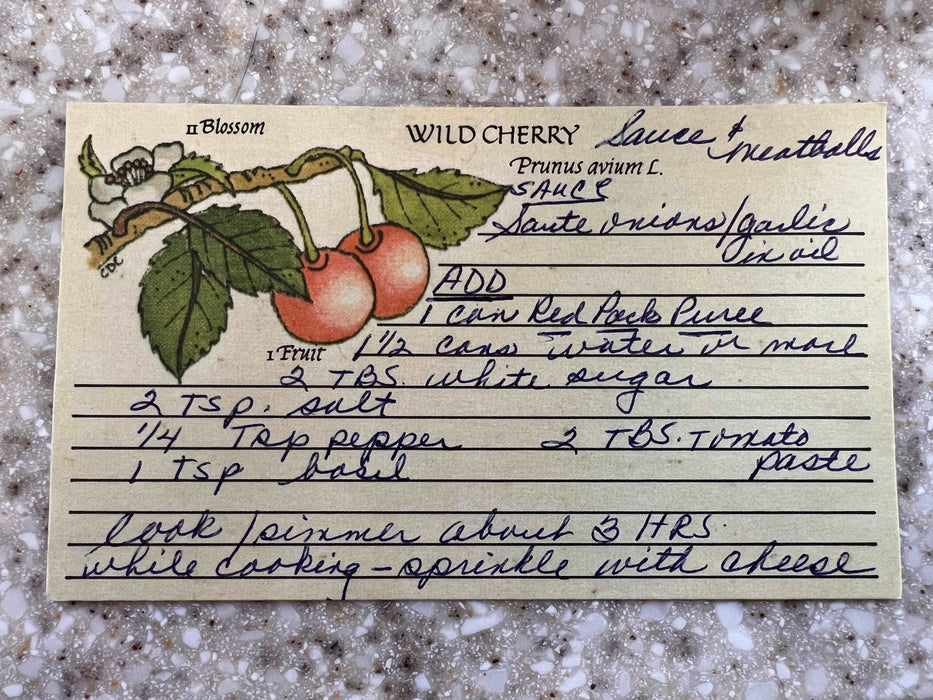 II Blossom
WILD CHERRY
Sauce & meatballs
Prunus avium L.
SAUCE
Saute onions/garlic
in oil
ADD
1 can Red Pack Puree
1 1/2 cans water or more
CDC
I Fruit
2 TBS. white sugar
2 TSP. salt
1/4 Tsp pepper 2 TBS. Tomato
paste
1 TSP basil
Cook/simmer about 3 HRS.
while cooking - sprinkle with cheese